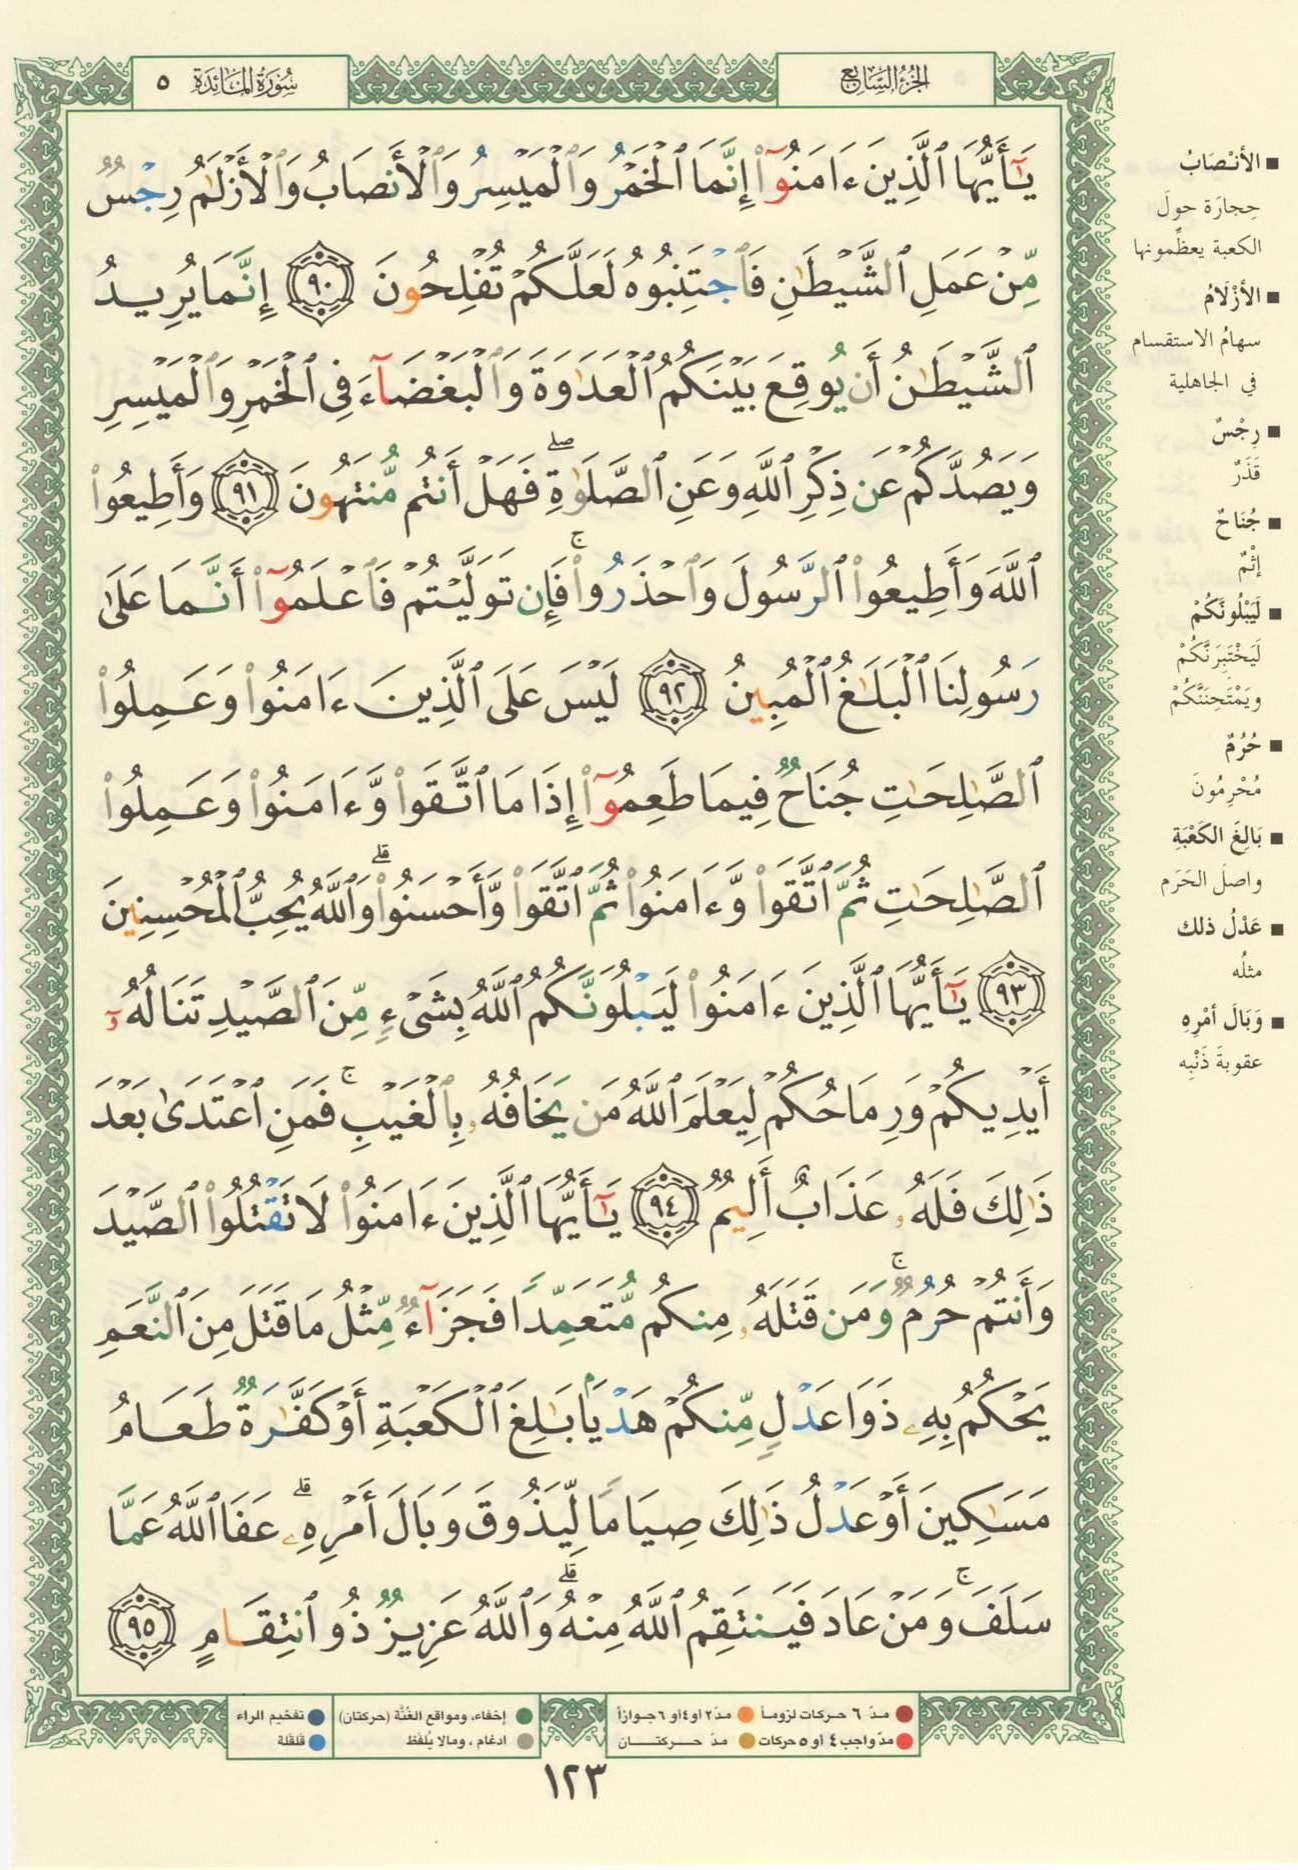 الجزء السابع
سورة المائدة ٥
يَٰٓأَيُّهَا ٱلَّذِينَ ءَامَنُوٓا۟ إِنَّمَا ٱلْخَمْرُ وَٱلْمَيْسِرُ وَٱلْأَنصَابُ وَٱلْأَزْلَٰمُ رِجْسٌ
مِّنْ عَمَلِ ٱلشَّيْطَٰنِ فَٱجْتَنِبُوهُ لَعَلَّكُمْ تُفْلِحُونَ ٩٠ إِنَّمَا يُرِيدُ
ٱلشَّيْطَٰنُ أَن يُوقِعَ بَيْنَكُمُ ٱلْعَدَٰوَةَ وَٱلْبَغْضَآءَ فِى ٱلْخَمْرِ وَٱلْمَيْسِرِ
وَيَصُدَّكُمْ عَن ذِكْرِ ٱللَّهِ وَعَنِ ٱلصَّلَوٰةِ ۖ فَهَلْ أَنتُم مُّنتَهُونَ ٩١ وَأَطِيعُوا۟
ٱللَّهَ وَأَطِيعُوا۟ ٱلرَّسُولَ وَٱحْذَرُوا۟ ۚ فَإِن تَوَلَّيْتُمْ فَٱعْلَمُوٓا۟ أَنَّمَا عَلَىٰ
رَسُولِنَا ٱلْبَلَٰغُ ٱلْمُبِينُ ٩٢ لَيْسَ عَلَى ٱلَّذِينَ ءَامَنُوا۟ وَعَمِلُوا۟
ٱلصَّٰلِحَٰتِ جُنَاحٌ فِيمَا طَعِمُوٓا۟ إِذَا مَا ٱتَّقَوا۟ وَّءَامَنُوا۟ وَعَمِلُوا۟
ٱلصَّٰلِحَٰتِ ثُمَّ ٱتَّقَوا۟ وَّءَامَنُوا۟ ثُمَّ ٱتَّقَوا۟ وَّأَحْسَنُوا۟ ۗ وَٱللَّهُ يُحِبُّ ٱلْمُحْسِنِينَ
٩٣ يَٰٓأَيُّهَا ٱلَّذِينَ ءَامَنُوا۟ لَيَبْلُوَنَّكُمُ ٱللَّهُ بِشَىْءٍ مِّنَ ٱلصَّيْدِ تَنَالُهُۥٓ
أَيْدِيكُمْ وَرِمَاحُكُمْ لِيَعْلَمَ ٱللَّهُ مَن يَخَافُهُۥ بِٱلْغَيْبِ ۚ فَمَنِ ٱعْتَدَىٰ بَعْدَ
ذَٰلِكَ فَلَهُۥ عَذَابٌ أَلِيمٌ ٩٤ يَٰٓأَيُّهَا ٱلَّذِينَ ءَامَنُوا۟ لَا تَقْتُلُوا۟ ٱلصَّيْدَ
وَأَنتُمْ حُرُمٌ ۚ وَمَن قَتَلَهُۥ مِنكُم مُّتَعَمِّدًا فَجَزَآءٌ مِّثْلُ مَا قَتَلَ مِنَ ٱلنَّعَمِ
يَحْكُمُ بِهِۦ ذَوَا عَدْلٍ مِّنكُمْ هَدْيًۢا بَٰلِغَ ٱلْكَعْبَةِ أَوْ كَفَّٰرَةٌ طَعَامُ
مَسَٰكِينَ أَوْ عَدْلُ ذَٰلِكَ صِيَامًا لِّيَذُوقَ وَبَالَ أَمْرِهِۦ ۗ عَفَا ٱللَّهُ عَمَّا
سَلَفَ ۚ وَمَنْ عَادَ فَيَنتَقِمُ ٱللَّهُ مِنْهُ ۗ وَٱللَّهُ عَزِيزٌ ذُو ٱنتِقَامٍ ٩٥
■ الأنْصَابُ
حِجارَة حولَ
الكعبة يعظِّمونها
■ الأزْلَامُ
سهامُ الاستقسام
في الجاهلية
■ رِجْسٌ
قَذَرٌ
■ جُنَاحٌ
إثْمٌ
■ لَيَبْلُوَنَّكُمْ
لَيَخْتَبِرَنَّكُمْ
ويَمْتَحِنَنَّكُمْ
■ حُرُمٌ
مُحْرِمُونَ
■ بَالِغَ الكَعْبَةِ
واصلَ الحَرَم
■ عَدْلُ ذلك
مثلُه
■ وَبَالَ أمْرِهِ
عقوبةَ ذَنْبِه
مدّ ٦ حركات لزوماً مدّ ٢ او ٤ او ٦ جوازاً
مدّ واجب ٤ أو ٥ حركات مدّ حركتان
إخفاء، ومواقع الغُنَّة (حركتان) تفخيم الراء
ادغام ، ومالا يُلفَظ قلقلة
١٢٣